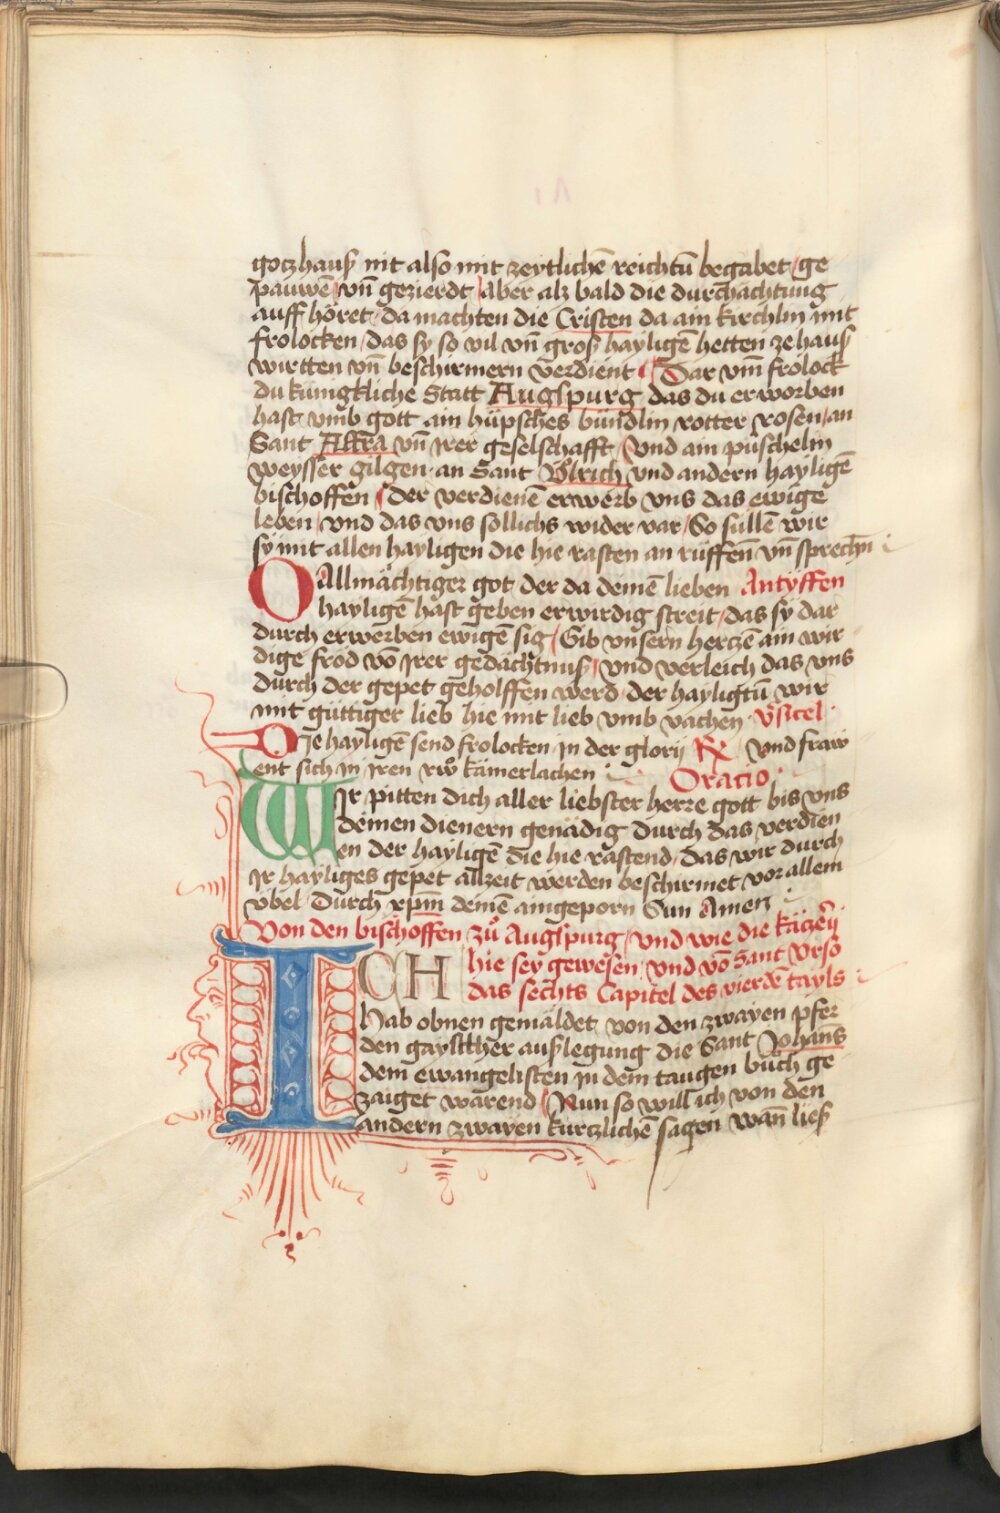 gotzhauß nit also mit zeytlichē reichtū begabet / ge
pauwē / vn̄ gezierdt / Aber alz bald die durchachtung
auff höret / da machten die Cristen da ain kirchlin mit
frolocken / das sy so vil vn̄ groß hayligē hetten ze hauß
wirtten vn̄ beschirmern verdient / Dar vm̄ frolock
du künigkliche Statt Auglpurg das du erworben
hast vmb gott ain hüpsches bündlin rotter rosen / an
Sant Affra vn̄ irer geselschafft / Vnd ain püschelin
weysser gilgen · an Sant Vͦlrich vnd andern hayligē
bischoffen / der verdienē erwerb vns das ewige
leben / vnd das vns sollichs wider var / So süllē wir
sy mit allen hayligen die hie rasten an rüffen vn̄ sprechn̄
O Allmächtiger got der da deinē lieben Antyffen
hayligē hast geben erwirdig streit / das sy dar
durch erwerben ewigē sig / Gib vnsern hertzē ain wir
dige fröd vō irer gedächtnuß / vnd verleich das vns
durch der gepet geholffen werd / der hayligtū wir
mit güttiger lieb hie mit lieb vmb vachen · v̄sicel ·
Die hayligē send frolocken in der glorij ℟ Vnd fraw
ent sich in iren rwͦ kämerlachen · Oracio ·
Wir pitten dich aller liebster herre gott bis vns
deinen dienern genädig durch das verdien
en der hayligē die hie rastend / das wir durch
ir hayliges gepet allzeit werden beschirmet vor allem
vbel / Durch xp̄m deinē aingeporn Sun Amen
Von den bischoffen zuͦ Auglpurg / vnd wie die kätzerij
ICH hie sey gewesen / vnd vō Sant Vrso
das sechts Capitel des vierdē tayls
hab obnen gemäldet von den zwayen pfer
den gaystlicher außlegung die Sant Johan̄s
dem ewangelisten in dem taugen buͦch ge
zaiget warend / Nun so will ich von den
andern zwayen kurtzlichē sagen wan̄ ließ